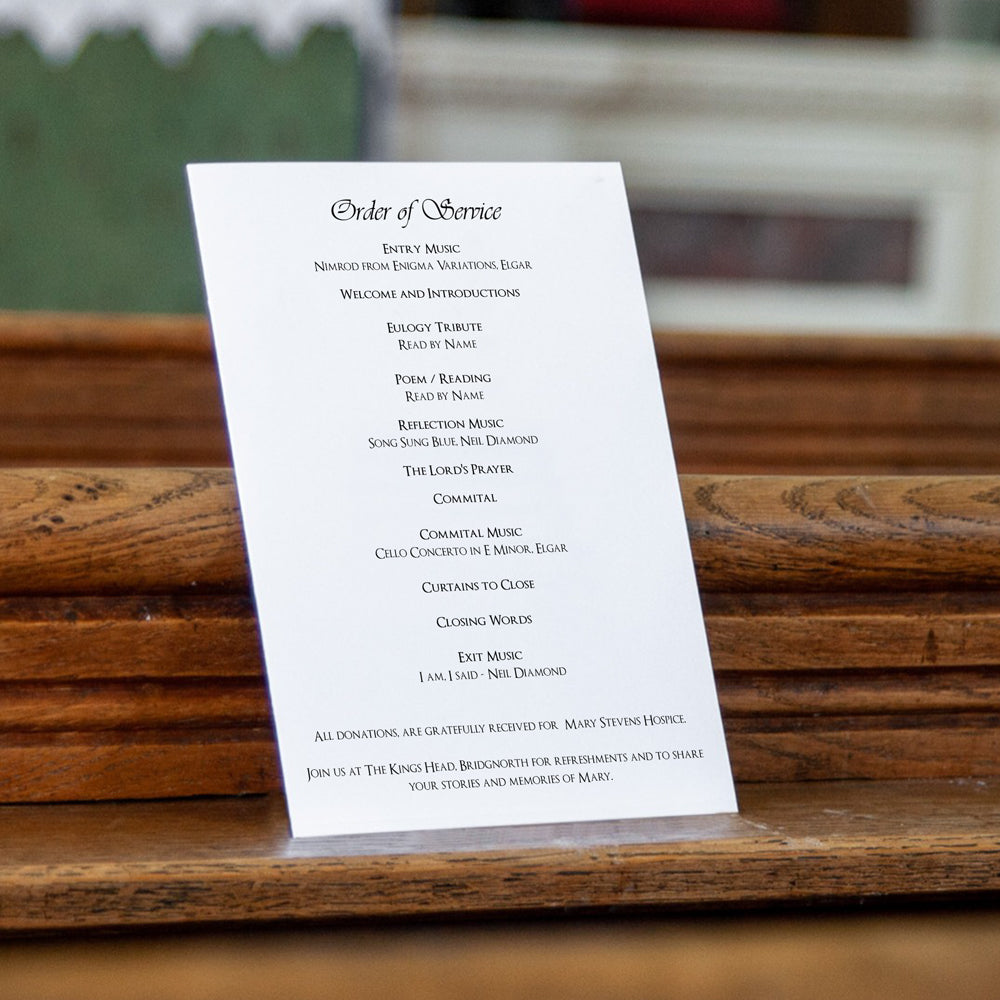 Order of Service
Entry Music
Nimrod from Enigma Variations, Elgar
Welcome and Introductions
Eulogy Tribute
Read by Name
Poem / Reading
Read by Name
Reflection Music
Song Sung Blue, Neil Diamond
The Lord's Prayer
Commital
Commital Music
Cello Concerto in E Minor, Elgar
Curtains to Close
Closing Words
Exit Music
I am, I said - Neil Diamond
All donations, are gratefully received for Mary Stevens Hospice.
Join us at The Kings Head, Bridgnorth for refreshments and to share
your stories and memories of Mary.